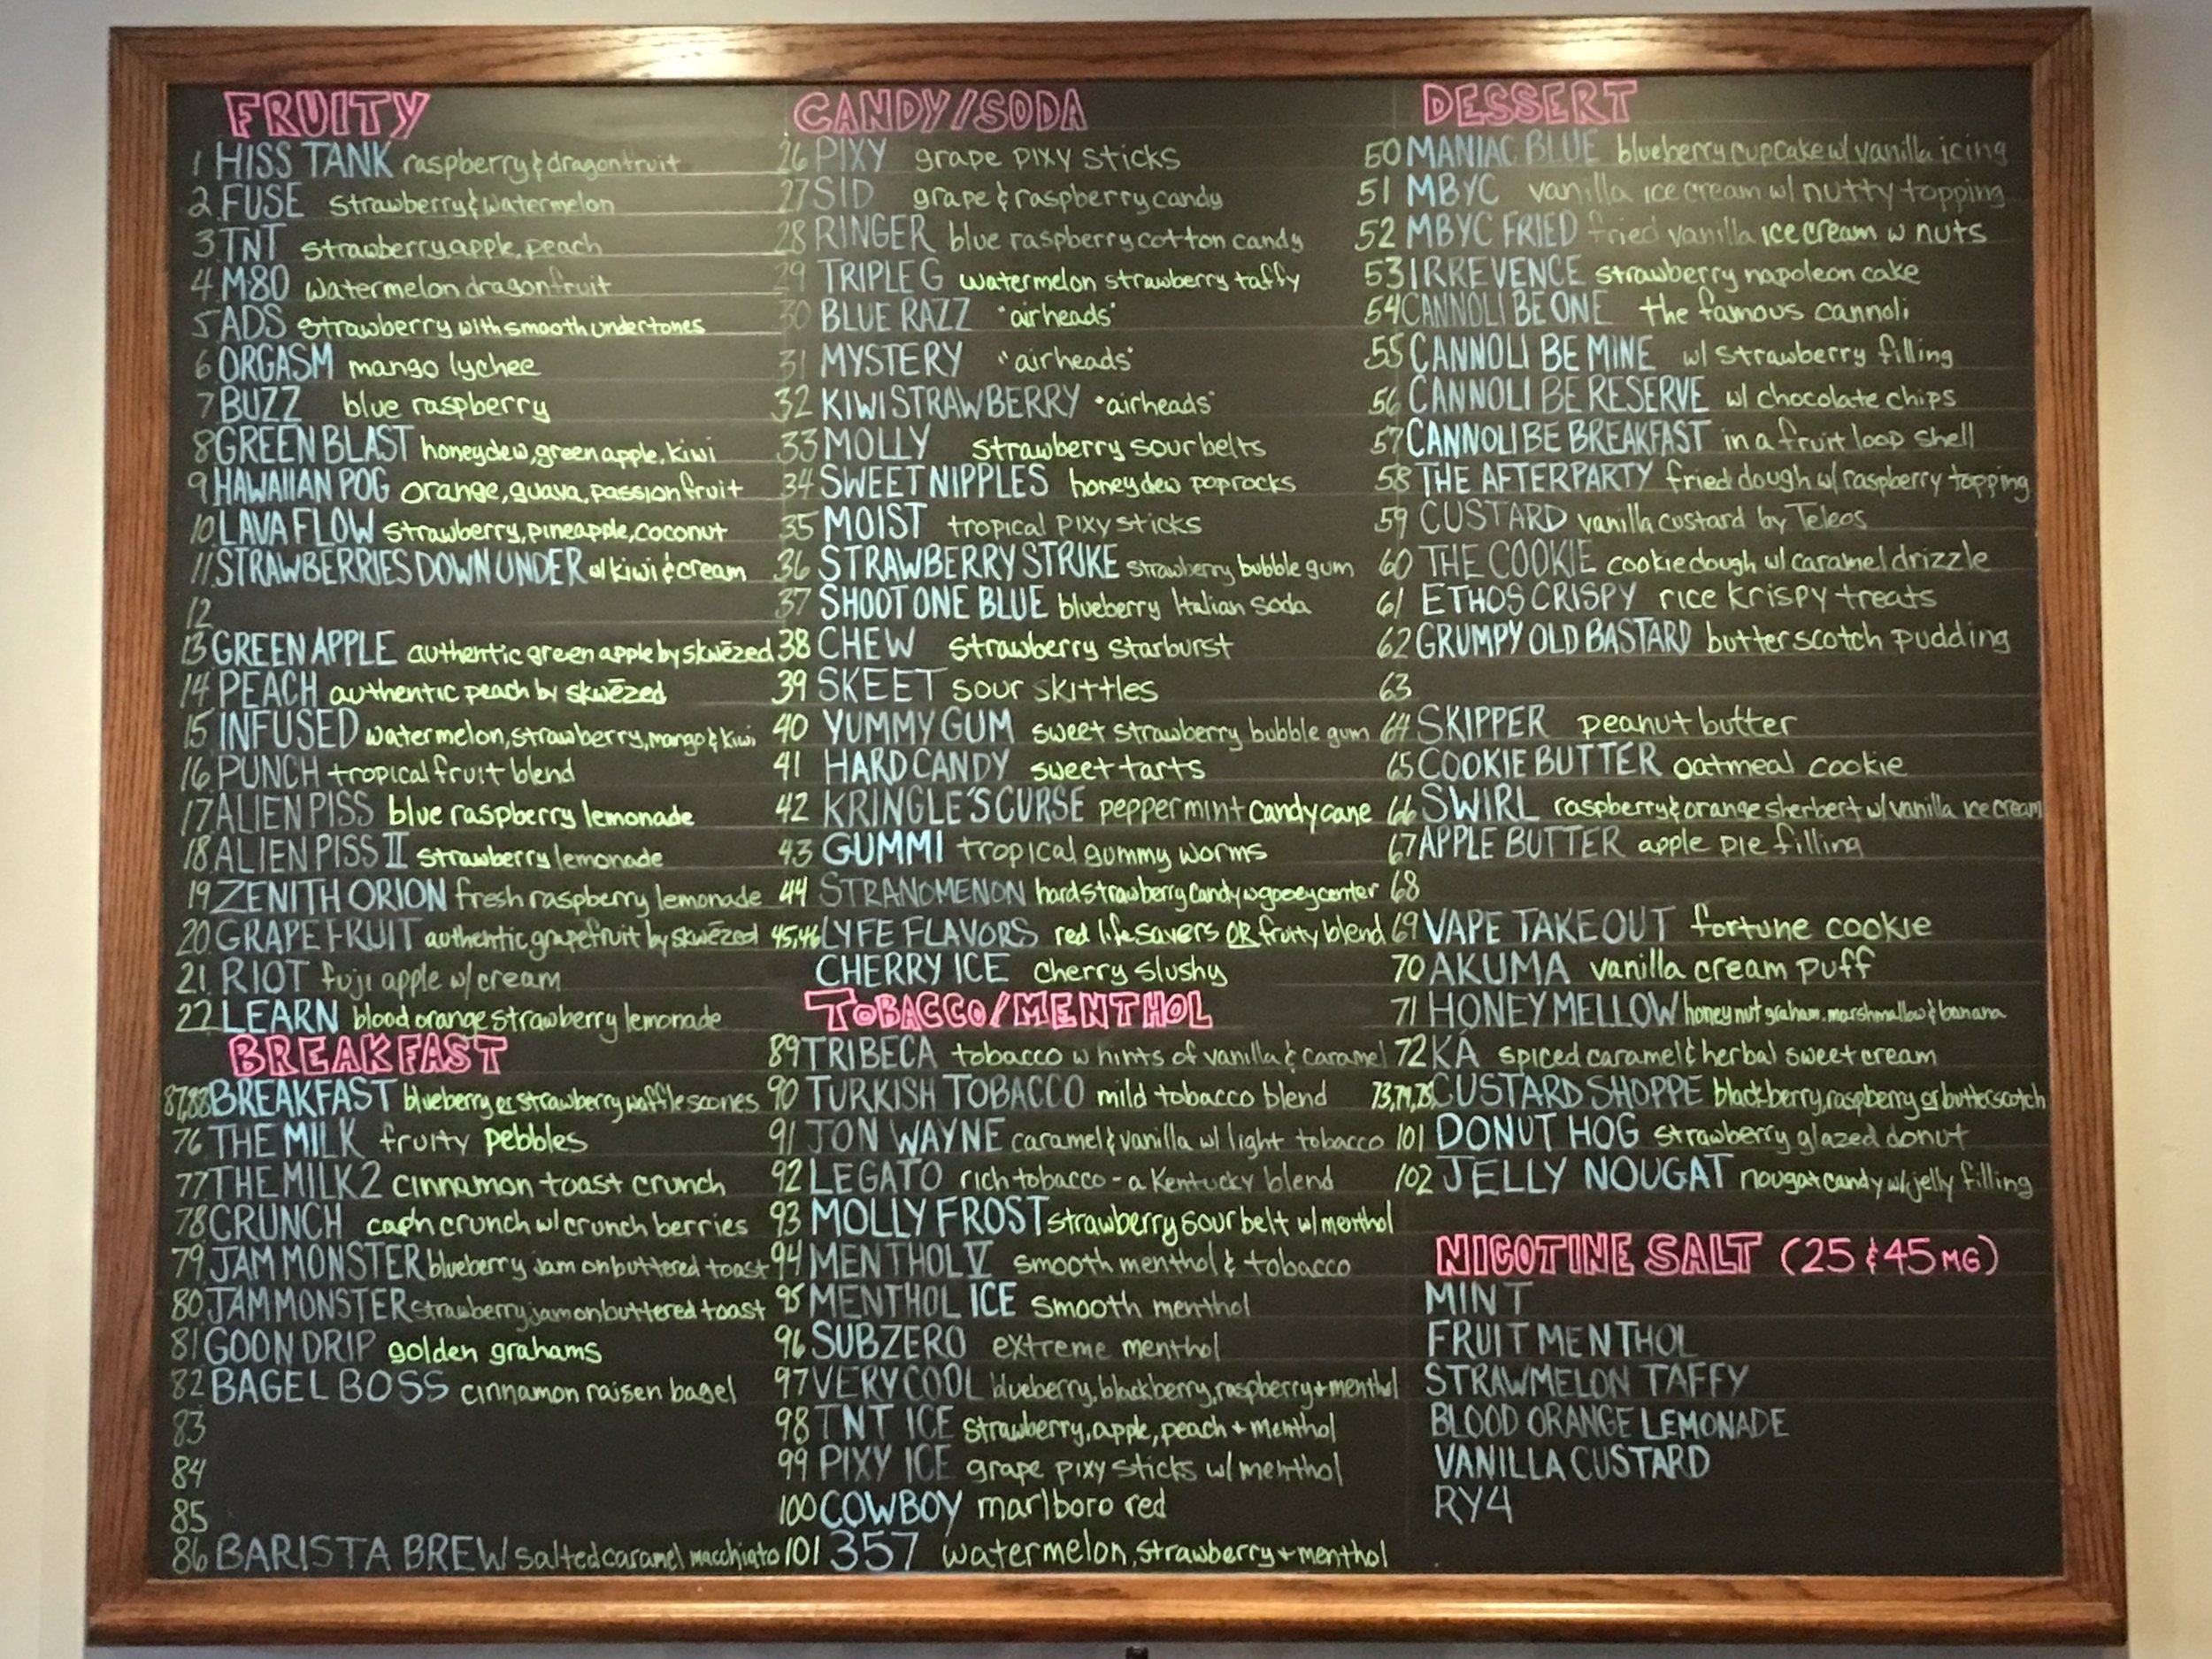 FRUITY
1 HISS TANK raspberry & dragonfruit
2 FUSE strawberry & watermelon
3 TNT strawberry, apple, peach
4 M80 watermelon dragonfruit
5 ADS strawberry with smooth undertones
6 ORGASM mango lychee
7 BUZZ blue raspberry
8 GREEN BLAST honeydew, green apple, kiwi
9 HAWAIIAN POG orange, guava, passionfruit
10 LAVA FLOW strawberry, pineapple, coconut
11 STRAWBERRIES DOWN UNDER w/ kiwi & cream
12
13 GREEN APPLE authentic green apple by skwēzed
14 PEACH authentic peach by skwēzed
15 INFUSED watermelon, strawberry, mango & kiwi
16 PUNCH tropical fruit blend
17 ALIEN PISS blue raspberry lemonade
18 ALIEN PISS II strawberry lemonade
19 ZENITH ORION fresh raspberry lemonade
20 GRAPEFRUIT authentic grapefruit by skwēzed
21. RIOT fuji apple w/ cream
22 LEARN blood orange strawberry lemonade
BREAKFAST
87,88 BREAKFAST blueberry or strawberry waffle scones
76 THE MILK fruity pebbles
77 THE MILK 2 cinnamon toast crunch
78 CRUNCH cap'n crunch w/ crunch berries
79 JAM MONSTER blueberry jam on buttered toast
80 JAM MONSTER strawberry jam on buttered toast
81 GOON DRIP golden grahams
82 BAGEL BOSS cinnamon raisen bagel
83
84
85
86 BARISTA BREW salted caramel macchiato
CANDY/SODA
26 PIXY grape pixy sticks
27 SID grape & raspberry candy
28 RINGER blue raspberry cotton candy
29 TRIPLE G watermelon strawberry taffy
30 BLUE RAZZ "airheads"
31 MYSTERY "airheads"
32 KIWI STRAWBERRY "airheads"
33 MOLLY strawberry sour belts
34 SWEET NIPPLES honeydew poprocks
35 MOIST tropical pixy sticks
36 STRAWBERRY STRIKE strawberry bubble gum
37 SHOOT ONE BLUE blueberry Italian soda
38 CHEW strawberry starburst
39 SKEET sour skittles
40 YUMMY GUM sweet strawberry bubble gum
41 HARD CANDY sweet tarts
42 KRINGLE'S CURSE peppermint candy cane
43 GUMMI tropical gummy worms
44 STRANOMENON hard strawberry candy w gooey center
45,46 LYFE FLAVORS red lifesavers OR fruity blend
CHERRY ICE cherry slushy
TOBACCO/MENTHOL
89 TRIBECA tobacco w hints of vanilla & caramel
90 TURKISH TOBACCO mild tobacco blend
91 JON WAYNE caramel & vanilla w/ light tobacco
92 LEGATO rich tobacco - a Kentucky blend
93 MOLLY FROST strawberry sour belt w/ menthol
94 MENTHOL V smooth menthol & tobacco
95 MENTHOL ICE smooth menthol
96 SUBZERO extreme menthol
97 VERY COOL blueberry, blackberry, raspberry + menthol
98 TNT ICE strawberry, apple, peach + menthol
99 PIXY ICE grape pixy sticks w/ menthol
100 COWBOY marlboro red
101 357 watermelon, strawberry + menthol
DESSERT
50 MANIAC BLUE blueberry cupcake w/ vanilla icing
51 MBYC vanilla ice cream w/ nutty topping
52 MBYC FRIED fried vanilla ice cream w nuts
53 IRREVENCE strawberry napoleon cake
54 CANNOLI BE ONE the famous cannoli
55 CANNOLI BE MINE w/ strawberry filling
56 CANNOLI BE RESERVE w/ chocolate chips
57 CANNOLI BE BREAKFAST in a fruit loop shell
58 THE AFTERPARTY fried dough w/ raspberry topping
59 CUSTARD vanilla custard by Teleos
60 THE COOKIE cookie dough w/ caramel drizzle
61 ETHOS CRISPY rice krispy treats
62 GRUMPY OLD BASTARD butterscotch pudding
63
64 SKIPPER peanut butter
65 COOKIE BUTTER oatmeal cookie
66 SWIRL raspberry & orange sherbert w/ vanilla ice cream
67 APPLE BUTTER apple pie filling
68
69 VAPE TAKE OUT fortune cookie
70 AKUMA vanilla cream puff
71 HONEY MELLOW honey nut graham, marshmallow & banana
72 KA spiced caramel & herbal sweet cream
73,74,75 CUSTARD SHOPPE blackberry, raspberry or butterscotch
101 DONUT HOG strawberry glazed donut
102 JELLY NOUGAT nougat candy w/ jelly filling
NICOTINE SALT (25 & 45 MG)
MINT
FRUIT MENTHOL
STRAWMELON TAFFY
BLOOD ORANGE LEMONADE
VANILLA CUSTARD
RY4